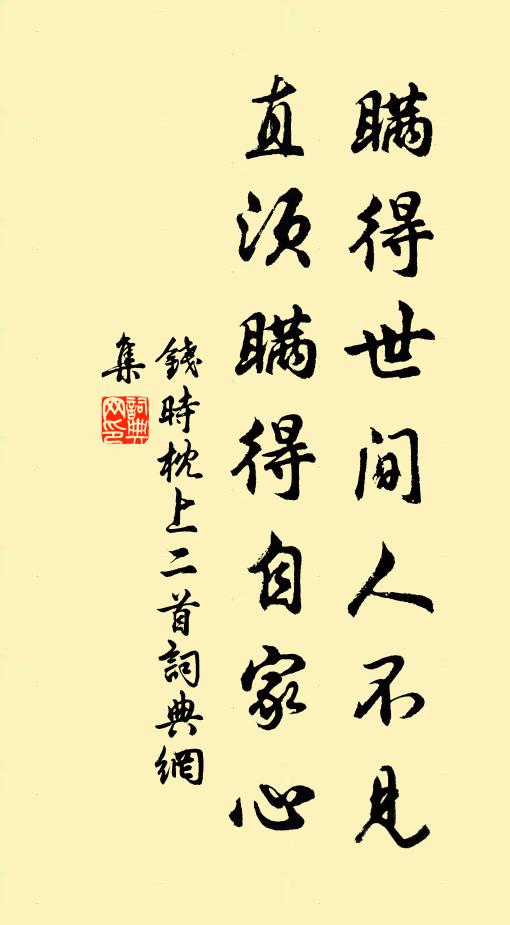 瞞得世間人不見
直須瞞得自家心
錢時枕上二首詞典網
集
詞典
网印